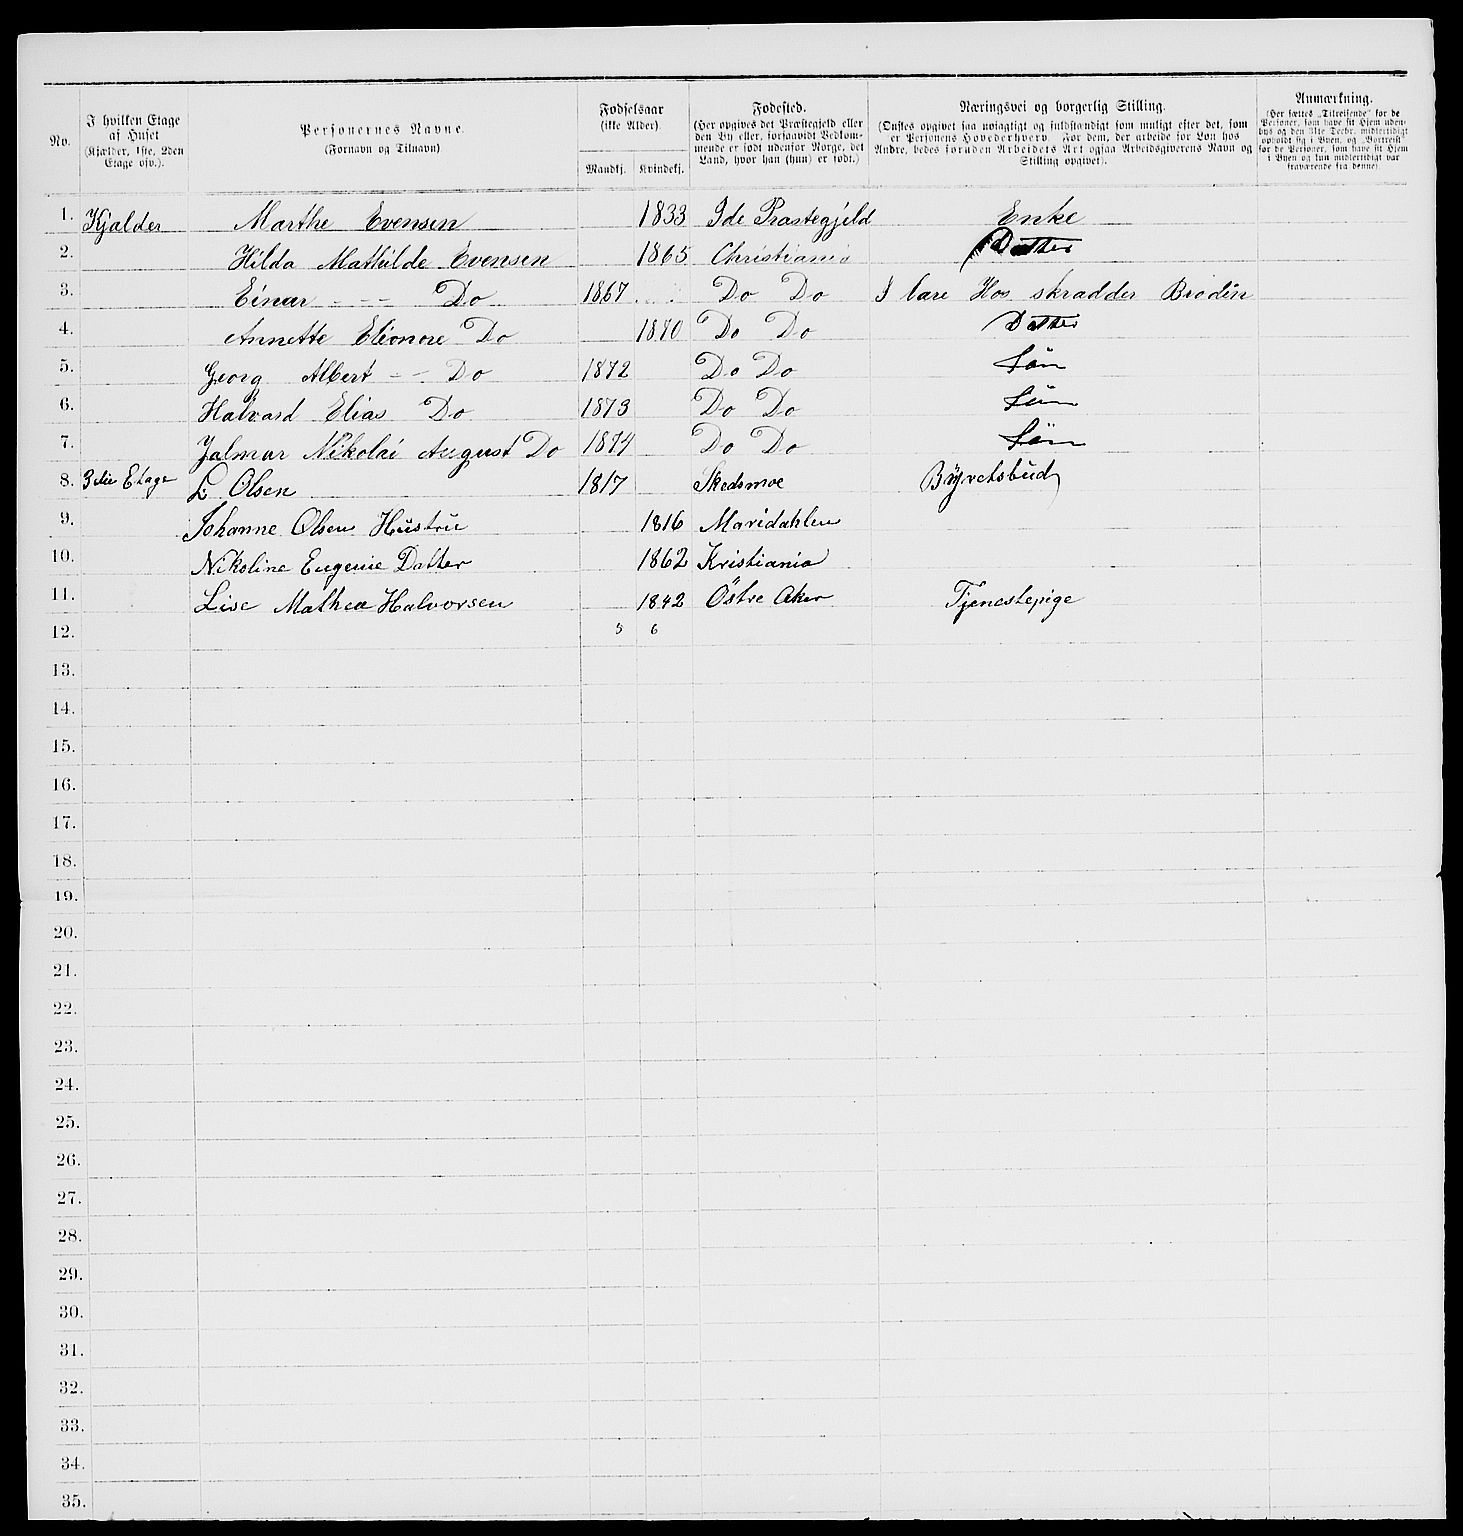 No.	I hvilken Etage af Huset (Kjælder, 1ste, 2den Etage osv.).	Personernes Navne. (Fornavn og Tilnavn)	Fødselsaar (ikke Alder) Mandkj.	Kvindekj.	Fødested. (Her opgives det Præstegjeld eller den By eller, forsaavidt Vedkommende er født udenfor Norge, det Land, hvor han (hun) er født.)	Næringsvei og borgerlig Stilling. (Ønskes opgivet saa nøiagtigt og fuldstændigt som muligt efter det, som er Personens Hovederhverv. For dem, der arbeide for Løn hos Andre, bedes foruden Arbeidets Art ogsaa Arbeidsgiverens Navn og Stilling opgivet).	Anmærkning. (Her sættes „Tilreisende“ for de Personer, som have sit Hjem udenbys og den 31te Decbr. midlertidigt opholdt sig i Byen, og „Bortreist“ for de Personer, som have sit Hjem i Byen og kun midlertidigt var fraværende fra denne)
1. Kjalder Marthe Evensen 1833 Ide Prastegjeld Enke
2. Hilda Mathilde Evensen 1865 Christiania Datter
3. Einar - - - Do 1867 Do Do I lare Hos skradder Brodin
4. Annette Eleonore Do 1870 Do Do Datter
5. Georg Albert - - Do 1872 Do Do Søn
6. Halvard Elias Do 1873 Do Do Søn
7. Jalmar Nikolai August Do 1874 Do Do Søn
8. 3die Etage L. Olsen 1817 Skedsmoe Byretsbud
9. Johanne Olsen Hustru 1816 Maridahlen
10. Nikoline Eugenie Datter 1862 Kristiania
11. Lise Mathea Halvorsen 1842 Östre Aker Tjenestepige
12. 5 6
13.
14.
15.
16.
17.
18.
19.
20.
21.
22.
23.
24.
25.
26.
27.
28.
29.
30.
31.
32.
33.
34.
35.